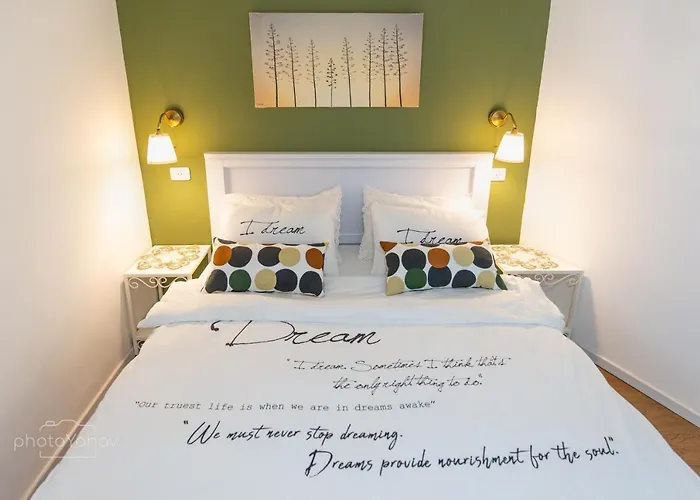 I dream
I dream
"Dream
"I dream. Sometimes I think that's
the only right thing to do."
"Our truest life is when we are in dreams awake"
"We must never stop dreaming.
Dreams provide nourishment for the soul".
photoYanov